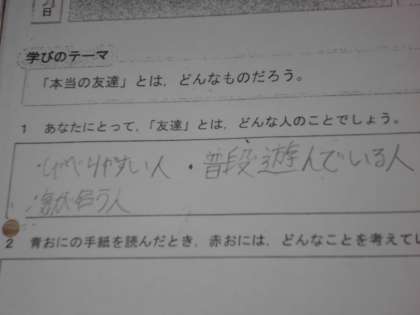 日
学びのテーマ
「本当の友達」とは，どんなものだろう。
1 あなたにとって，「友達」とは，どんな人のことでしょう。
・しゃべりやすい人 ・普段遊んでいる人
・息が合う人
2 青おにの手紙を読んだとき，赤おには，どんなことを考えてい